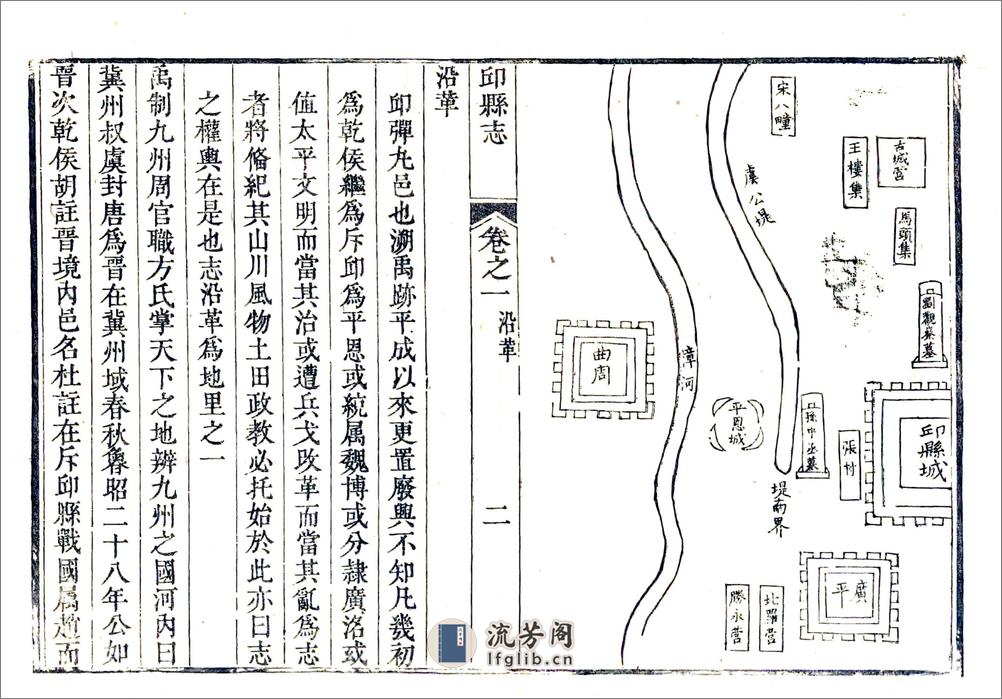 宋八疃
古城營
王樓集
馬頭集
虞公堤
劉觀察墓
漳河
曲周
平恩城
孫中丞墓
張村
邱縣城
堤南界
廣平
北羅營
勝永營
邱縣志
卷之一
沿革
二
沿革
邱彈丸邑也溯禹跡平成以來更置廢興不知凡幾初
為乾侯繼為斥邱為平恩或統属魏博或分隷廣洺或
值太平文明而當其治或遭兵戈改革而當其亂為志
者將俻紀其山川風物土田政教必托始於此亦曰志
之權輿在是也志沿革為地里之一
禹制九州周官職方氏掌天下之地辨九州之國河內曰
冀州叔虞封唐為晉在冀州域春秋魯昭二十八年公如
晉次乾侯胡註晉境內邑名杜註在斥邱縣戰國属趙而
流芳阁
lfglib.cn